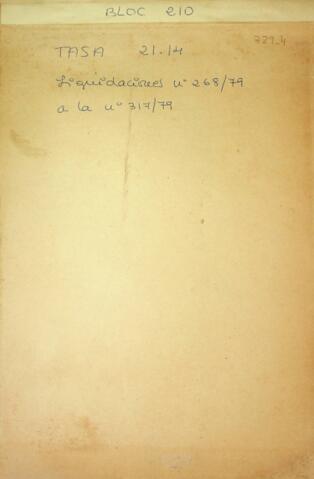 BLOC 210
729.4
TASA 21.14
Liquidaciones nº 268/79
a la nº 317/79